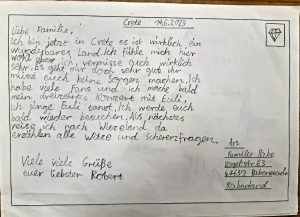 Crete 14.6.2023
Liebe Familie,
ich bin jetzt in Crete es ist wirklich ein
wunderbares Land. Ich fühle mich hier
wohl aber ich vermisse euch wirklich
sehr. Es geht mir doch sehr gut ihr
müsst euch keine Sorgen machen. Ich
habe viele Fans und ich mache bald
mein Konzert mit Euli.
Ich singe Euli tanzt. Ich werde euch
bald wieder besuchen. Als nächstes
reise ich nach Witzeland da
erzählen alle Witze und scherzfragen.
Viele viele Grüße
euer liebster Robert
An
Familie Rabe
63
Rabenwade
Raberland